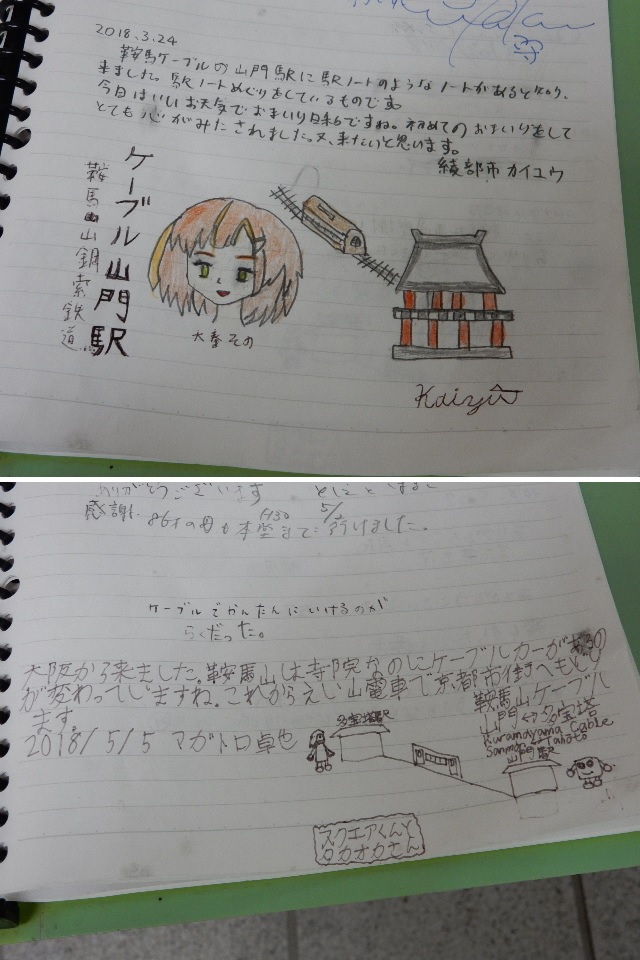 2018.3.24
鞍馬ケーブルの山門駅に駅ノートのようなノートがあると知り、
来ました。駅ノートめぐりをしているものです。
今日はいいお天気でおまいり日和ですね。初めてのおまいりをして
とても心がみたされました。又、来たいと思います。
綾部市 カイユウ
ケーブル山門駅
鞍馬山鋼索鉄道
大春その
Kaiyu
ありがとうございます
感謝 86才の母も本堂まで行けました。
H30 5/
ケーブルでかんたんにいけるのが
らくだった。
大阪から来ました。鞍馬山は寺院なのにケーブルカーがあるの
が変わっていますね。これからえい山電車で京都市街へもどり
ます。
2018/5/5 マガトロ卓也
鞍馬山ケーブル
山門↔多宝塔
Kuramayama Cable
Sanmon Tahoto
多宝塔駅
山門駅
スクエアくんと
タカオカさん